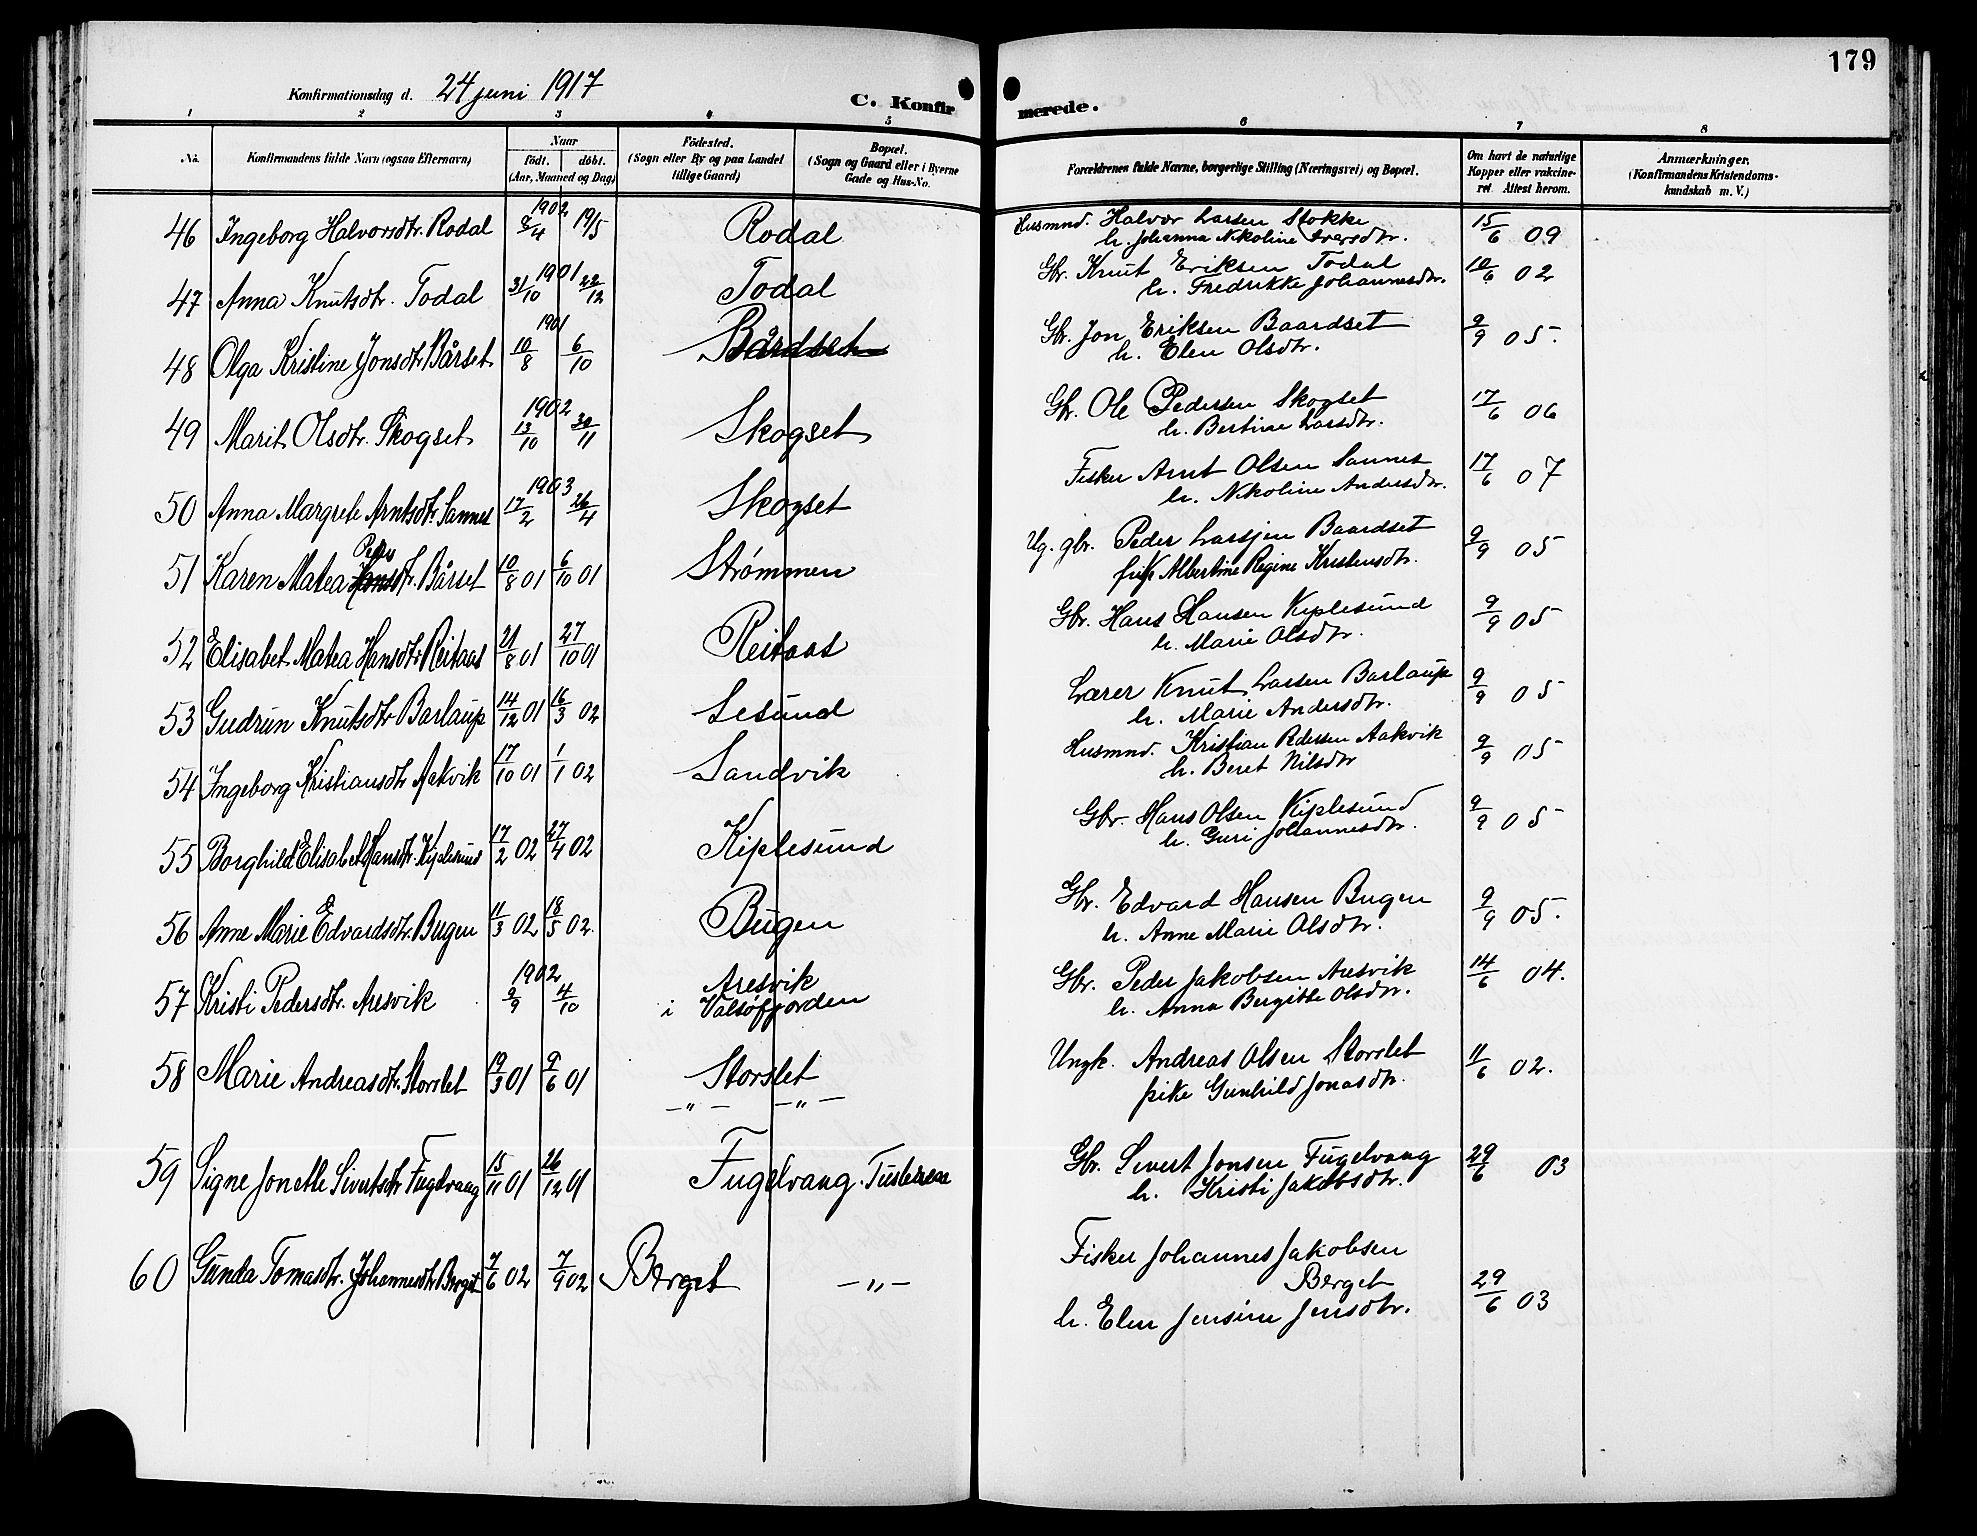 179
Konfirmationsdag d. 24 juni 1917
C. Konfirmerede.
1 2 3 4 5 6 7 8
No. Konfirmandens fulde Navn (ogsaa Efternavn)
Naar
födt. döbt.
(Aar, Maaned og Dag)
Födested.
(Sogn eller By og paa Landet
tillige Gaard)
Bopæl.
(Sogn og Gaard eller i Byerne
Gade og Hus-No.
Forældrenes fulde Navne, borgerlige Stilling (Næringsvei) og Bopæl.
Om havt de naturlige
Kopper eller vakcine-
ret. Attest herom.
Anmærkninger.
(Konfirmandens Kristendoms-
kundskab m. V.)
46 Ingeborg Halvorsdtr. Rodal 1902 8/4 19/5 Rodal Husmnd. Halvor Larsen Stokke 15/6 09
h. Johanna Nikoline Iversdtr.
47 Anna Knutsdtr. Todal 1901 31/10 22/12 Todal Gbr. Knut Eriksen Todal 10/6 02
h. Fredrikke Johannesdtr.
48 Olga Kristine Jonsdtr. Bårset 1901 10/8 6/10 Bårdset Gbr. Jon Eriksen Baardset 9/9 05.
h. Elen Olsdtr.
49 Marit Olsdtr. Skogset 1902 13/10 30/11 Skogset Gbr. Ole Pedersen Skogset 17/6 06
h. Bertine Larsdtr.
50 Anna Margrete Arntsdtr. Sannes 1903 17/2 26/4 Skogset Fisker Arnt Olsen Sannes 17/6 07
h. Nikoline Andersdtr.
51 Karen Matea Peders Hansdtr. Bårset 10/8 01 6/10 01 Strømmen Ug. gbr. Peder Larsjen Baardset 9/9 05
pike Albertine Regine Kristensdtr.
52 Elisabet Matea Hansdtr. Reitaas 21/8 01 27/10 01 Reitaas Gbr. Hans Hansen Kiplesund 9/9 05
h. Marie Olsdtr.
53 Gudrun Knutsdtr. Barlaup 14/12 01 16/3 02 Lesund Lærer Knut Larsen Barlaup 9/9 05
h. Marie Andersdtr.
54 Ingeborg Kristiansdtr. Aakvik 17/10 01 1/1 02 Sandvik Husmnd. Kristian Pedersen Aakvik 9/9 05
h. Beret Nilsdtr
55 Borghild Elisabet Hansdtr. Kiplesund 17/2 02 27/4 02 Kiplesund Gbr. Hans Olsen Kiplesund 9/9 05
h. Guri Johannesdtr.
56 Anne Marie Edvardsdtr. Bugen 11/3 02 18/5 02. Bugen Gbr. Edvard Hansen Bugen 9/9 05.
h. Anne Marie Olsdtr.
57 Kristi Pedersdtr. Aresvik 1902 9/9 4/10 Aresvik Gbr. Peder Jakobsen Aresvik 14/6 04.
i Valsøfjorden h. Anna Bergitte Olsdtr.
58 Marie Andreasdtr. Storslet 19/3 01 9/6 01 Storslet Ungk. Andreas Olsen Storslet 11/6 02.
-"- -"- pike Gunhild Jonasdtr.
59 Signe Jonette Sivertsdtr Fugelvaag 15/11 01 26/12 01 Fugelvaag. Tusteren Gbr. Sivert Jonsen Fugelvaag 29/6 03
h. Kristi Jakobsdtr.
60 Gunda Tomasdtr. Johannesdtr Berget 7/6 02 7/9 02 Berget -"- Fisker Johannes Jakobsen
Berget 29/6 03
h. Elen Jensine Jensdtr.